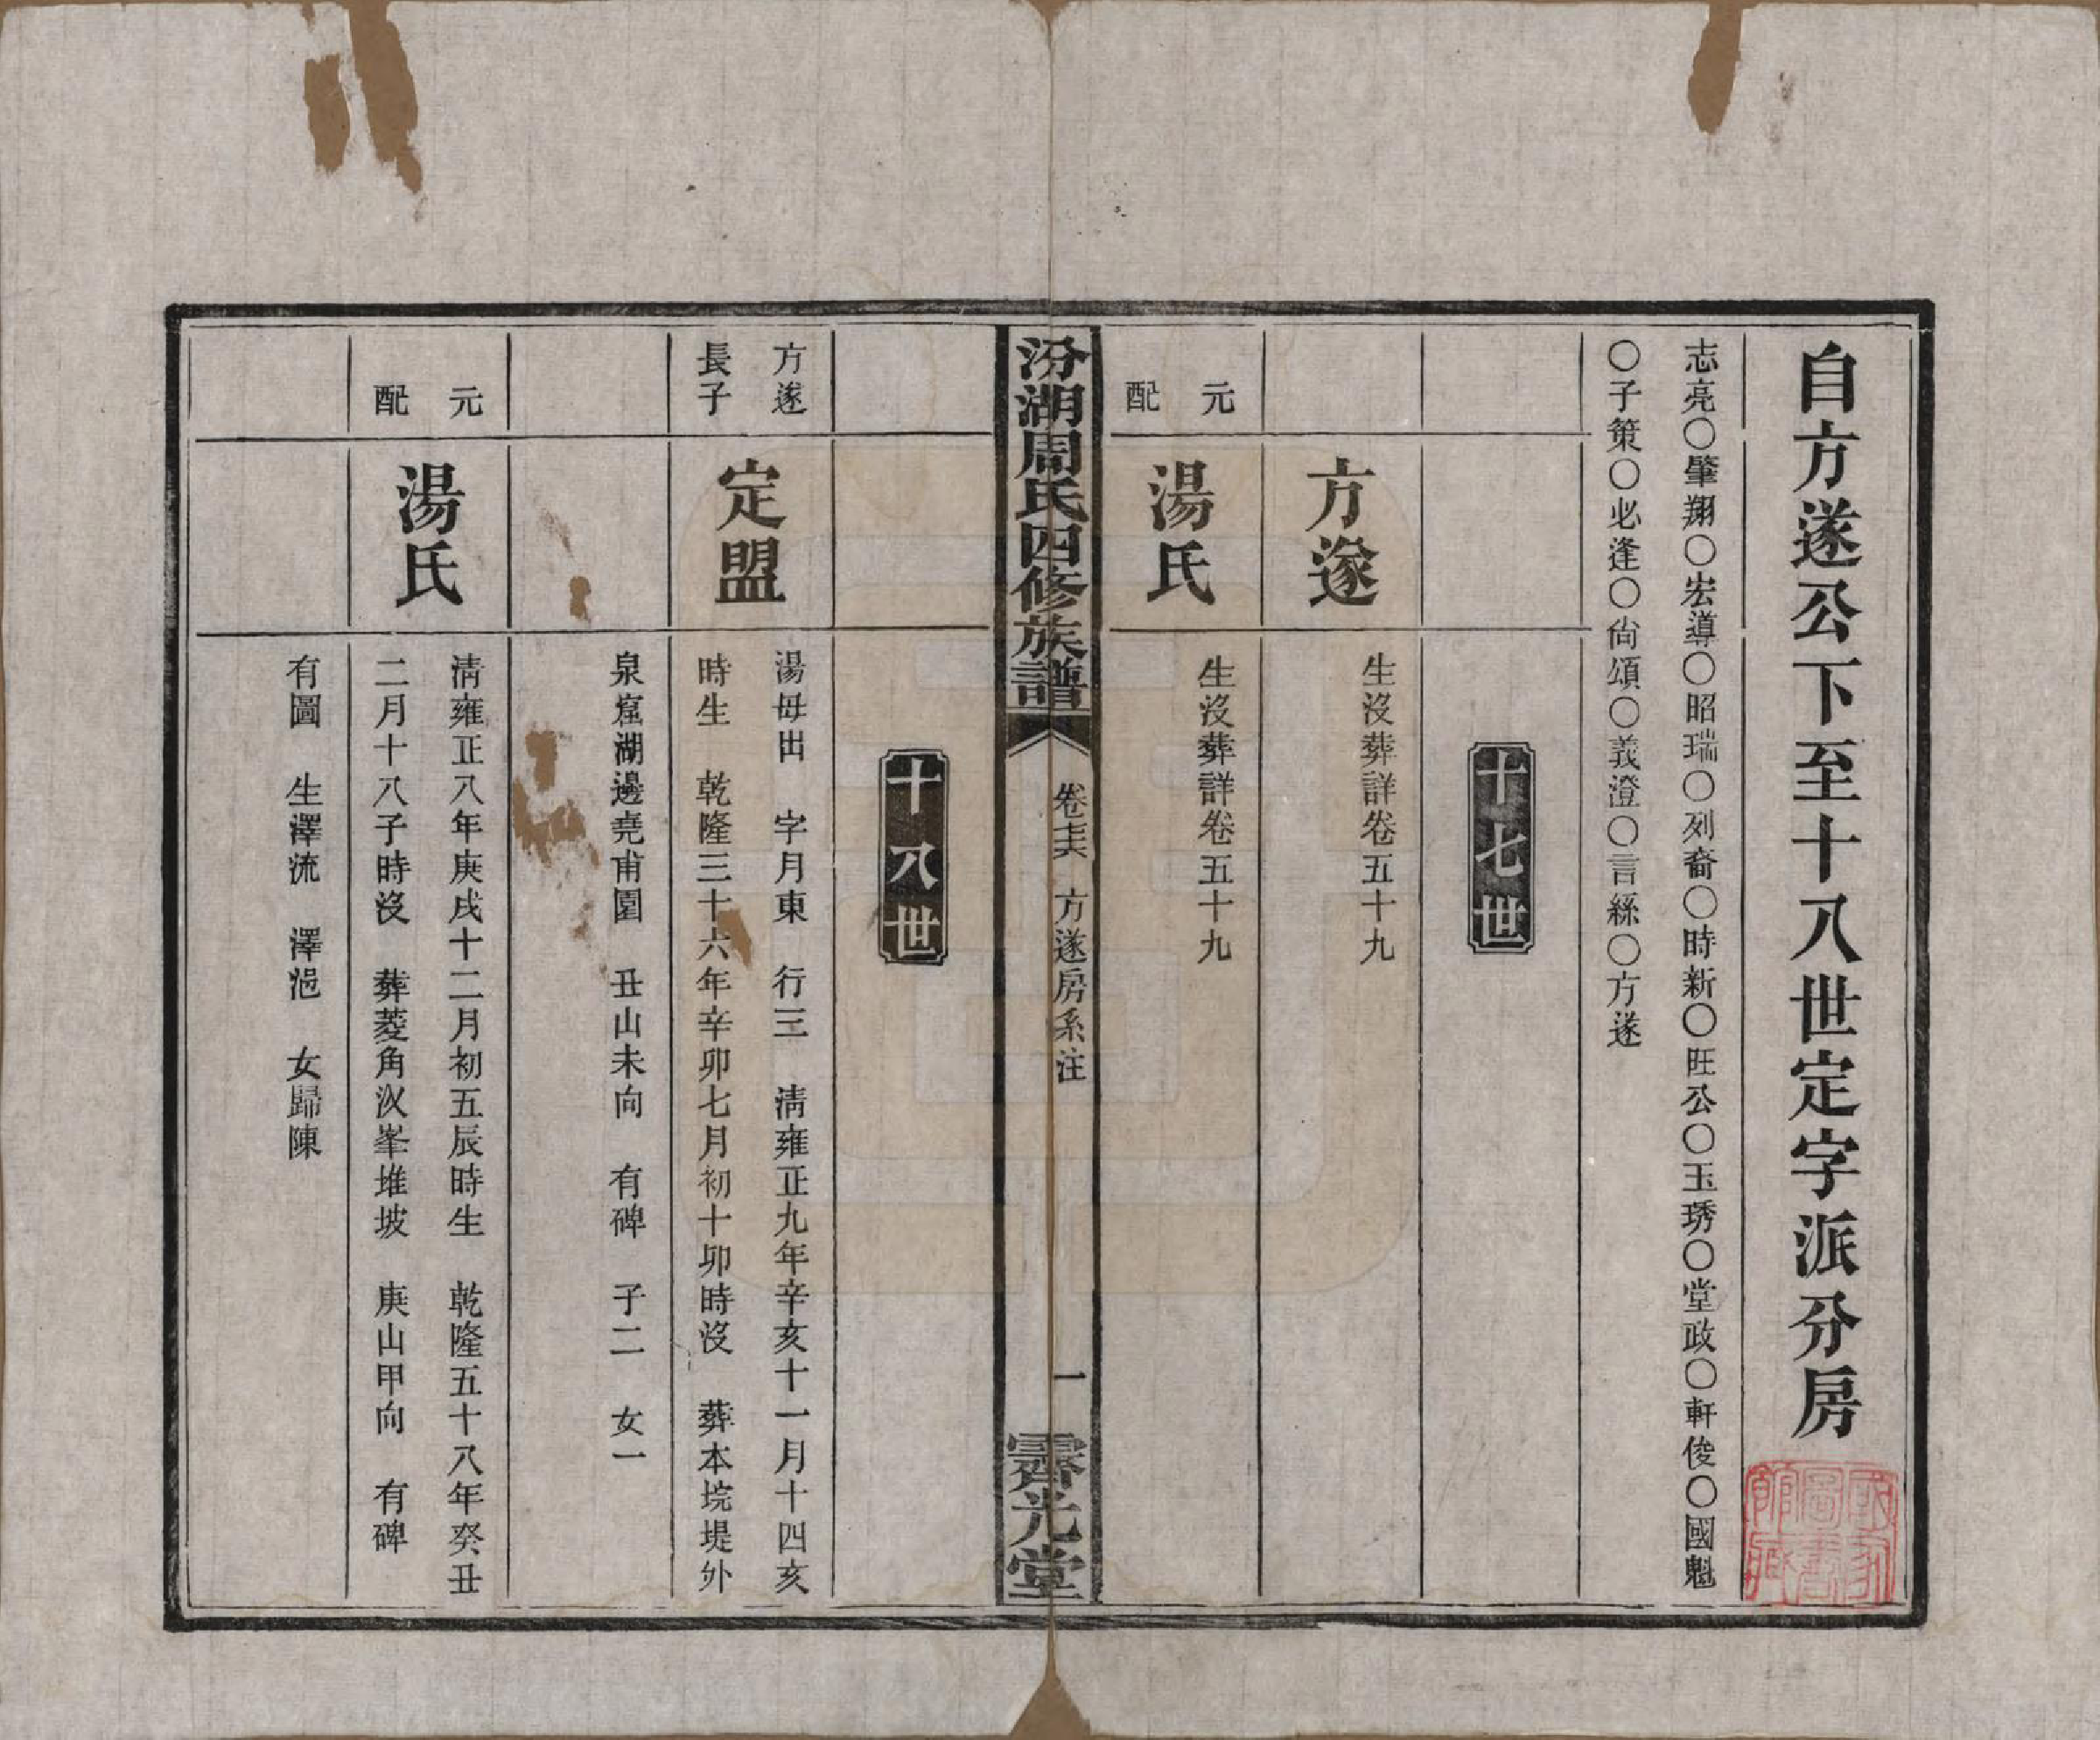 自方遂公下至十八世定字派分房
志亮〇肇翔〇宏導〇昭瑞〇列裔〇時新〇旺公〇玉琇〇堂政〇軒俊〇國魁
〇子策〇必逢〇尙頌〇義澄〇言綵〇方遂
十七世
方遂
生沒葬詳卷五十九
元配
湯氏
生沒葬詳卷五十九
汾湖周氏四修族譜
卷七六
方遂房系注
一
霽光堂
十八世
方遂長子
定盟
湯母出 字月東 行三 淸雍正九年辛亥十一月十四亥
時生 乾隆三十六年辛卯七月初十卯時沒 葬本垸堤外
泉窟湖邊堯甫園 丑山未向 有碑 子二 女一
元配
湯氏
淸雍正八年庚戌十二月初五辰時生 乾隆五十八年癸丑
二月十八子時沒 葬菱角汊峯堆坡 庚山甲向 有碑
有圖 生澤流 澤浥 女歸陳
國家圖書館藏